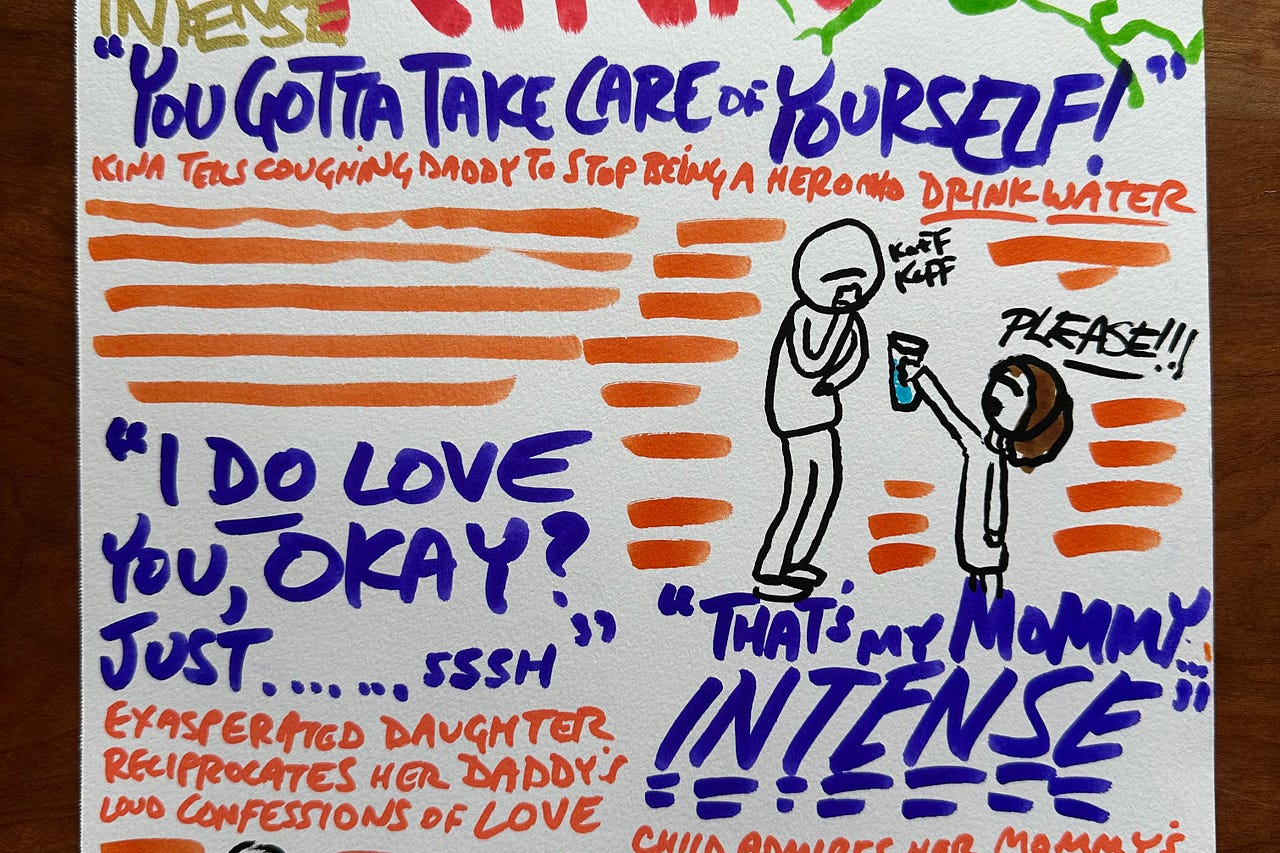 INTENSE
"YOU GOTTA TAKE CARE OF YOURSELF!"
KINA TELLS COUGHING DADDY TO STOP BEING A HERO AND DRINK WATER
KOFF
KOFF
PLEASE!!!
"I DO LOVE
YOU, OKAY?
JUST....... SSSH"
EXASPERATED DAUGHTER
RECIPROCATES HER DADDY'S
LOUD CONFESSIONS OF LOVE
"THAT'S MY MOMMY...
INTENSE"
CHILD ADMIRES HER MOMMY'S